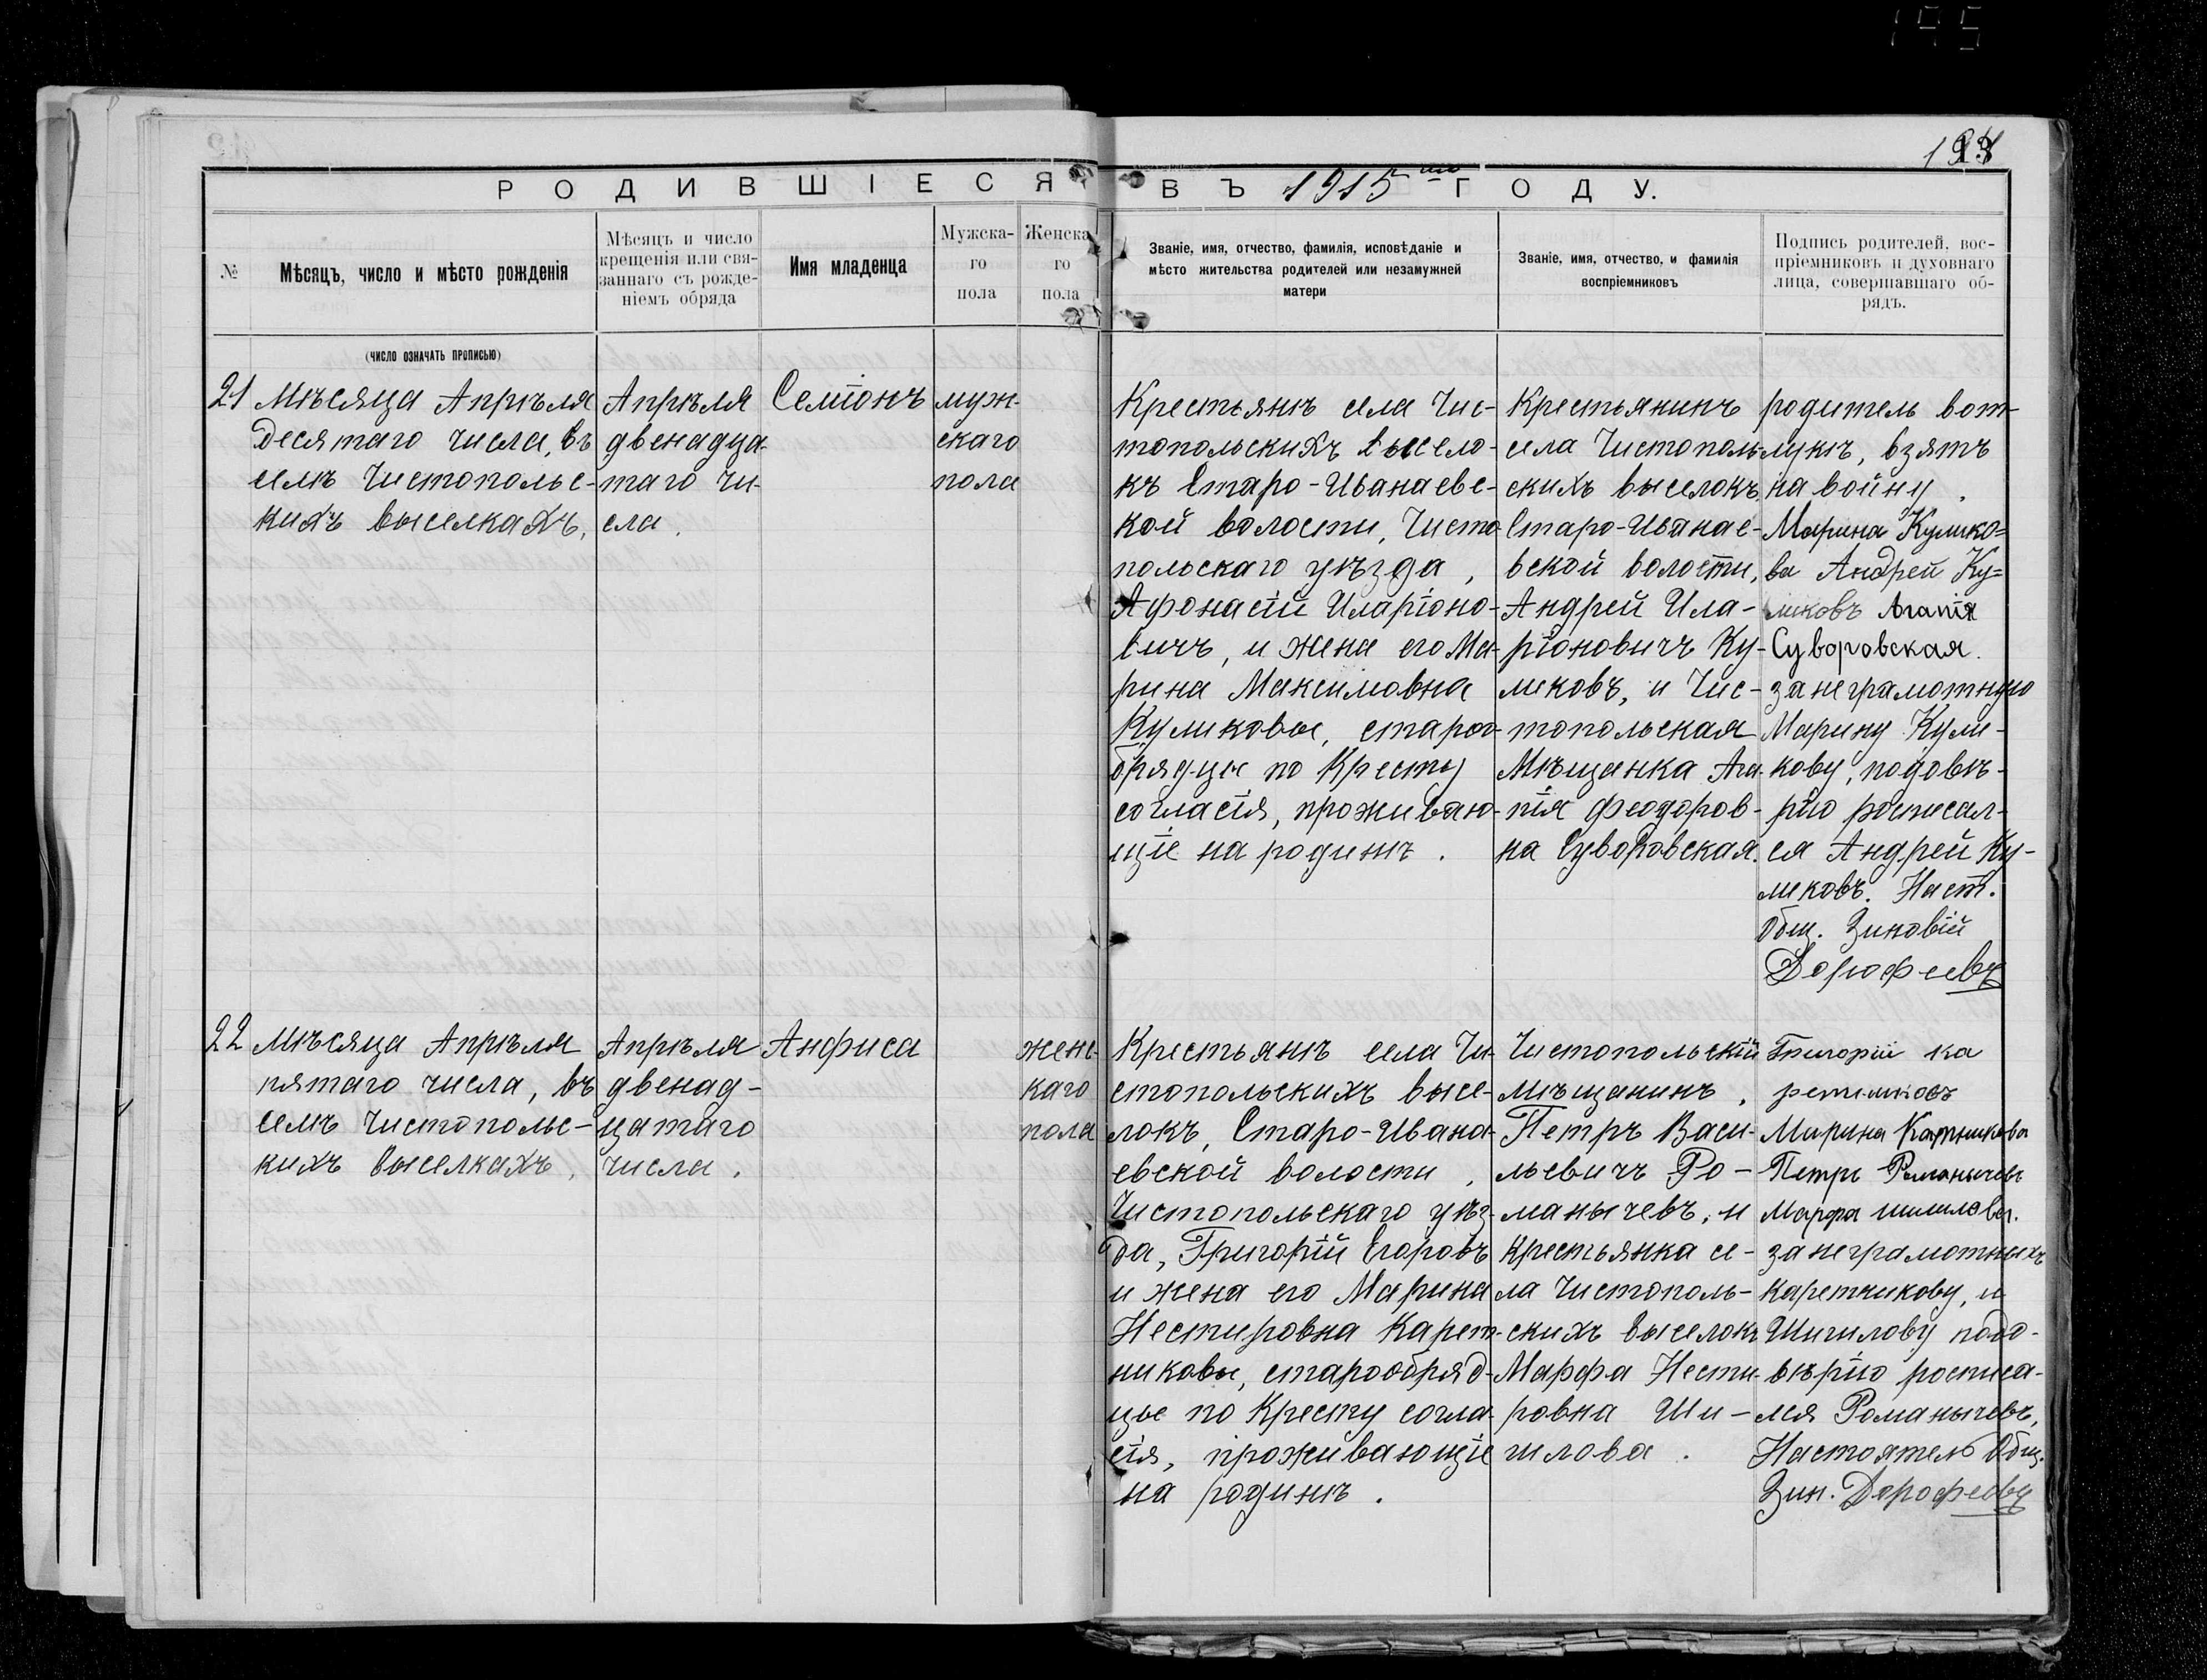 195
РОДИВШІЕСЯ
ВЪ 1915 ГОДУ.
№
Мѣсяцъ, число и мѣсто рожденія
Мѣсяцъ и число
крещенія или свя-
заннаго съ рожде-
ніемъ обряда
Имя младенца
Мужска-
го
пола
Женска
го
пола
Званіе, имя, отчество, фамилія, исповѣданіе и
мѣсто жительства родителей или незамужней
матери
Званіе, имя, отчество, и фамилія
воспріемниковъ
Подпись родителей, вос-
пріемниковъ и духовнаго
лица, совершавшаго об-
рядъ.
(число означать прописью)
21
Мѣсяца Апрѣля
десятаго числа, въ
селѣ Чистопольс-
кихъ выселкахъ,
Апрѣля
двенадца-
таго чи-
сла.
Семіонъ
муж-
скаго
пола
Крестьянъ села Чис-
топольскихъ высело-
къ Старо-Иванаевс-
кой волости, Чисто-
польскаго уѣзда,
Афонасій Иларіоно-
вичъ, и жена его Ма-
рина Максимовна
Куликовы, староо-
брядцы по Кресту
согласія, проживаю-
щіе на родинѣ.
Крестьянинъ
села Чистополь-
скихъ выселокъ
Старо-Иванае-
вской волости,
Андрей Ила-
ріоновичъ Ку-
ликовъ, и Чис-
топольская
Мѣщанка Ага-
пія Феодоров-
на Суворовская.
родитель вот-
лукѣ, взятъ
на войну.
Марина Кулико=
ва Андрей Ку=
ликовъ Агапія
Суворовская.
за неграмотную
Марину Кули-
кову, подовѣ-
рію росписал-
ся Андрей Ку-
ликовъ. Наст.
Общ. Зиновій
Дорофеевъ
22
Мѣсяца Апрѣля
пятаго числа, въ
селѣ Чистопольс-
кихъ выселкахъ,
Апрѣля
двенад-
цатаго
числа.
Анфиса
женс-
каго
пола
Крестьянъ села Чи-
стопольскихъ высе-
локъ, Старо-Ивана-
евской волости,
Чистопольскаго уѣз-
да, Григорій Егоровъ
и жена его Марина
Нестировна Карет-
никовы, старообряд-
цы по Кресту согла-
сія, проживающіе
на родинѣ.
Чистопольскій
мѣщанинъ,
Петръ Васи-
льевичъ Ро-
манычевъ, и
Крестьянка се-
ла Чистополь-
скихъ выселокъ
Марфа Нести-
ровна Ши-
шлова.
Григорій ка
ретников
Марина Каретникова
Петръ Романычевъ
Марфа
за неграмотныхъ
Каретникову, и
Шишлову подо-
вѣрію росписа-
лся Романычевъ,
Настоятель Общ.
Зин. Дорофеевъ